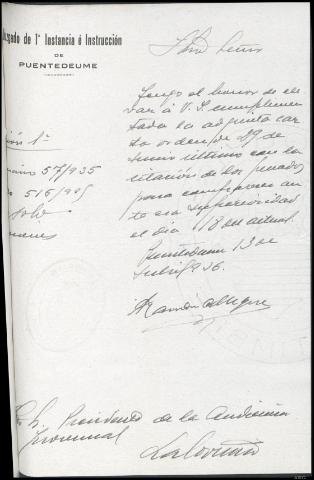 Juzgado de 1ª Instancia é Instrucción
DE
PUENTEDEUME
Ilmo Señor
Tengo el honor de ele
var á V.I. cumplimen
tada la adjunta car
ta orden de 19 de
Junio último con la
citación de los
para comparecer an
te esa superioridad
el dia 18 del actual.
Puentedeume 13 de
Julio 1936.
Ramón
57/935
Sr. Presidente de la Audiencia
Provincial
La Coruña